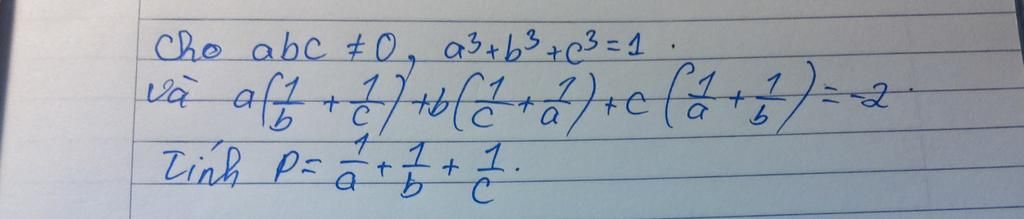 Cho abc ≠ 0, a³ + b³ + c³ = 1.
và a(1/b + 1/c) + b(1/c + 1/a) + c(1/a + 1/b) = -2.
Tính P = 1/a + 1/b + 1/c.